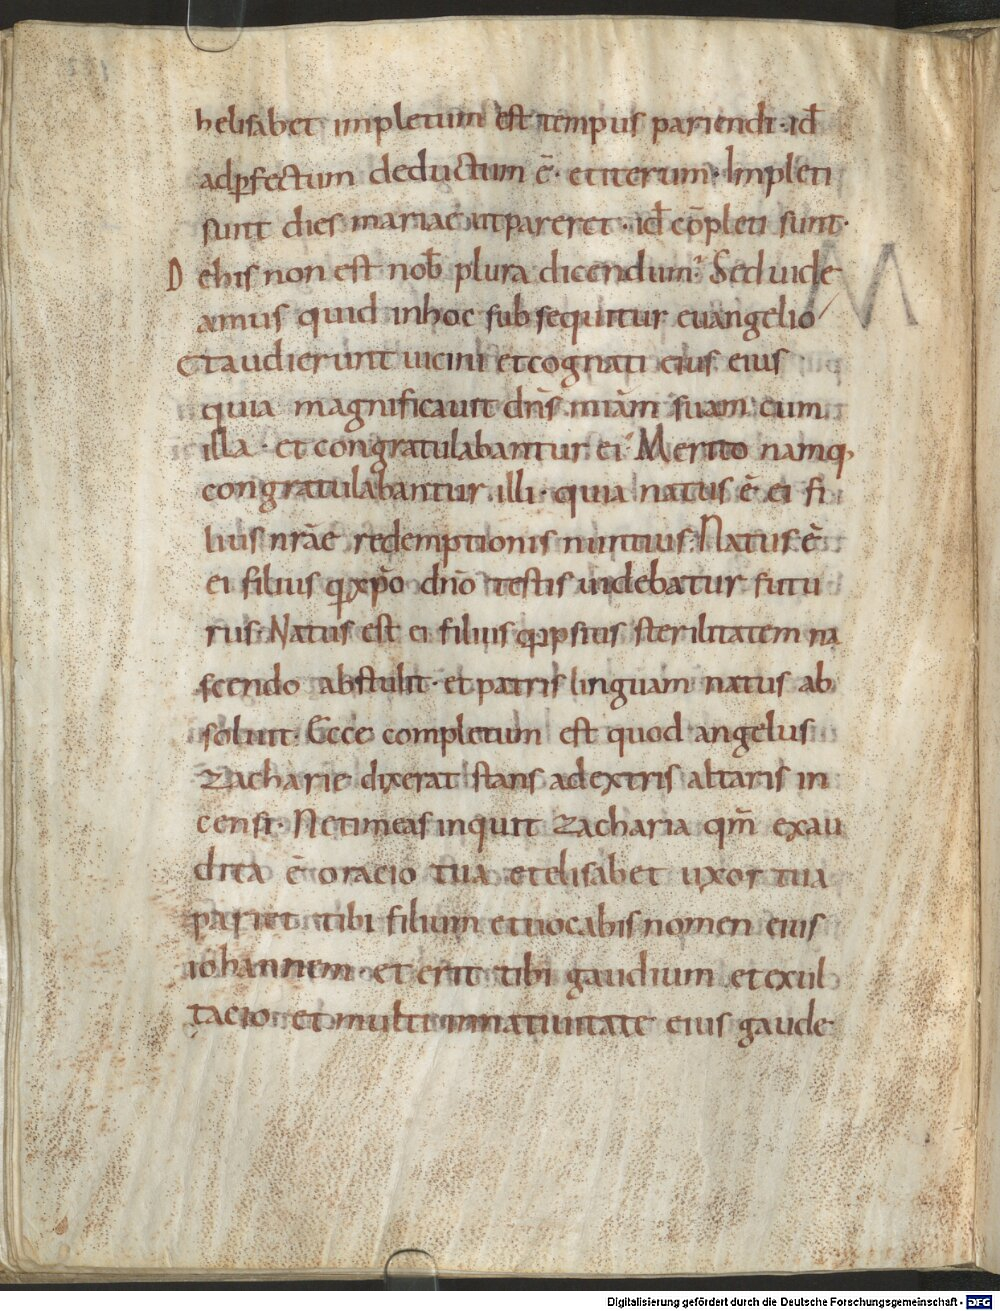 helisabet impletum est tempus pariendi· id̄
adꝑfectum deductum ē· et iterum· Impleti
sunt dies mariae ut pareret· id̄ cōpleti sunt·
De his non est nob̄ plura dicendum· Sed uide
amus quid in hoc subsequitur euangelio
M
Et audierunt uicini et cognati eius eius
quia magnificauit dn̄s miām suam cum
illa· et congratulabantur ei· Merito namq·
congratulabantur illi· quia natus ē ei fi
lius nrāe redemptionis nuntius· Natus ē
ei filius q xp̄o dn̄o testis uidebatur futu
rus· Natus est ei filius qui ipsius sterilitatem na
scendo abstulit· et patris linguam natus ab
soluit· Ecce completum est quod angelus
Zacharie dixerat stans adextris altaris in
censi· Ne timeas inquit zacharia qm̄ exau
dita ē oracio tua et elisabet uxor tua
pariet tibi filium et uocabis nomen eius
iohannem· et erit tibi gaudium et exul
tacio et multi in natiuitate eius gaude
Digitalisierung gefördert durch die Deutsche Forschungsgemeinschaft - DFG